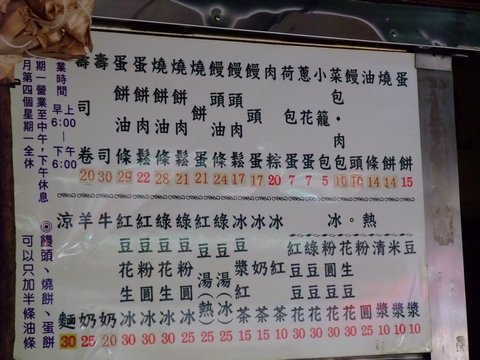 蛋餅 15
燒餅 14
油條 14
饅頭 10
菜包·肉包 10
小籠包 5
蔥花蛋 7
荷包蛋 7
肉粽 20
饅頭蛋 17
饅頭肉鬆 17
饅頭油條 24
燒餅蛋 21
燒餅肉鬆 21
燒餅油條 28
蛋餅肉鬆 22
蛋餅油條 29
壽司 30
壽司卷 20
冰。熱
豆漿 10
米漿 10
清漿 10
粉圓 25
花生豆花 30
粉圓豆花 30
綠豆豆花 30
紅豆豆花 30
冰紅茶 10
冰奶茶
冰豆漿紅茶
綠豆湯(冰) 25
紅豆湯(熱) 25
綠豆粉圓冰 25
綠豆花生冰 25
紅豆粉圓冰 25
紅豆花生冰 25
牛奶 20
羊奶 25
涼麵 30
業時間 早上6:00—下午6:00
期一營業至中午,下午休息
月第四個星期一全休
◎饅頭、燒餅、蛋餅
可以只加半條油條